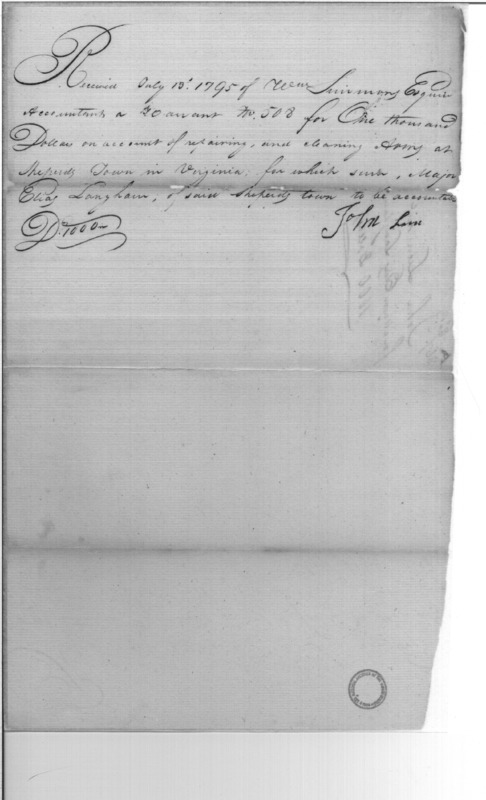 Received July 13t. 1795 of Wm Simmons Esquire
Accountant a Warrant No. 508 for One thousand
Dollars on account of repairing, and cleaning Arms, at
Sheperds Town in Virginia; for which sum, Major
Elias Langham, of said Sheperds town to be accountable
Ds. 1000
John